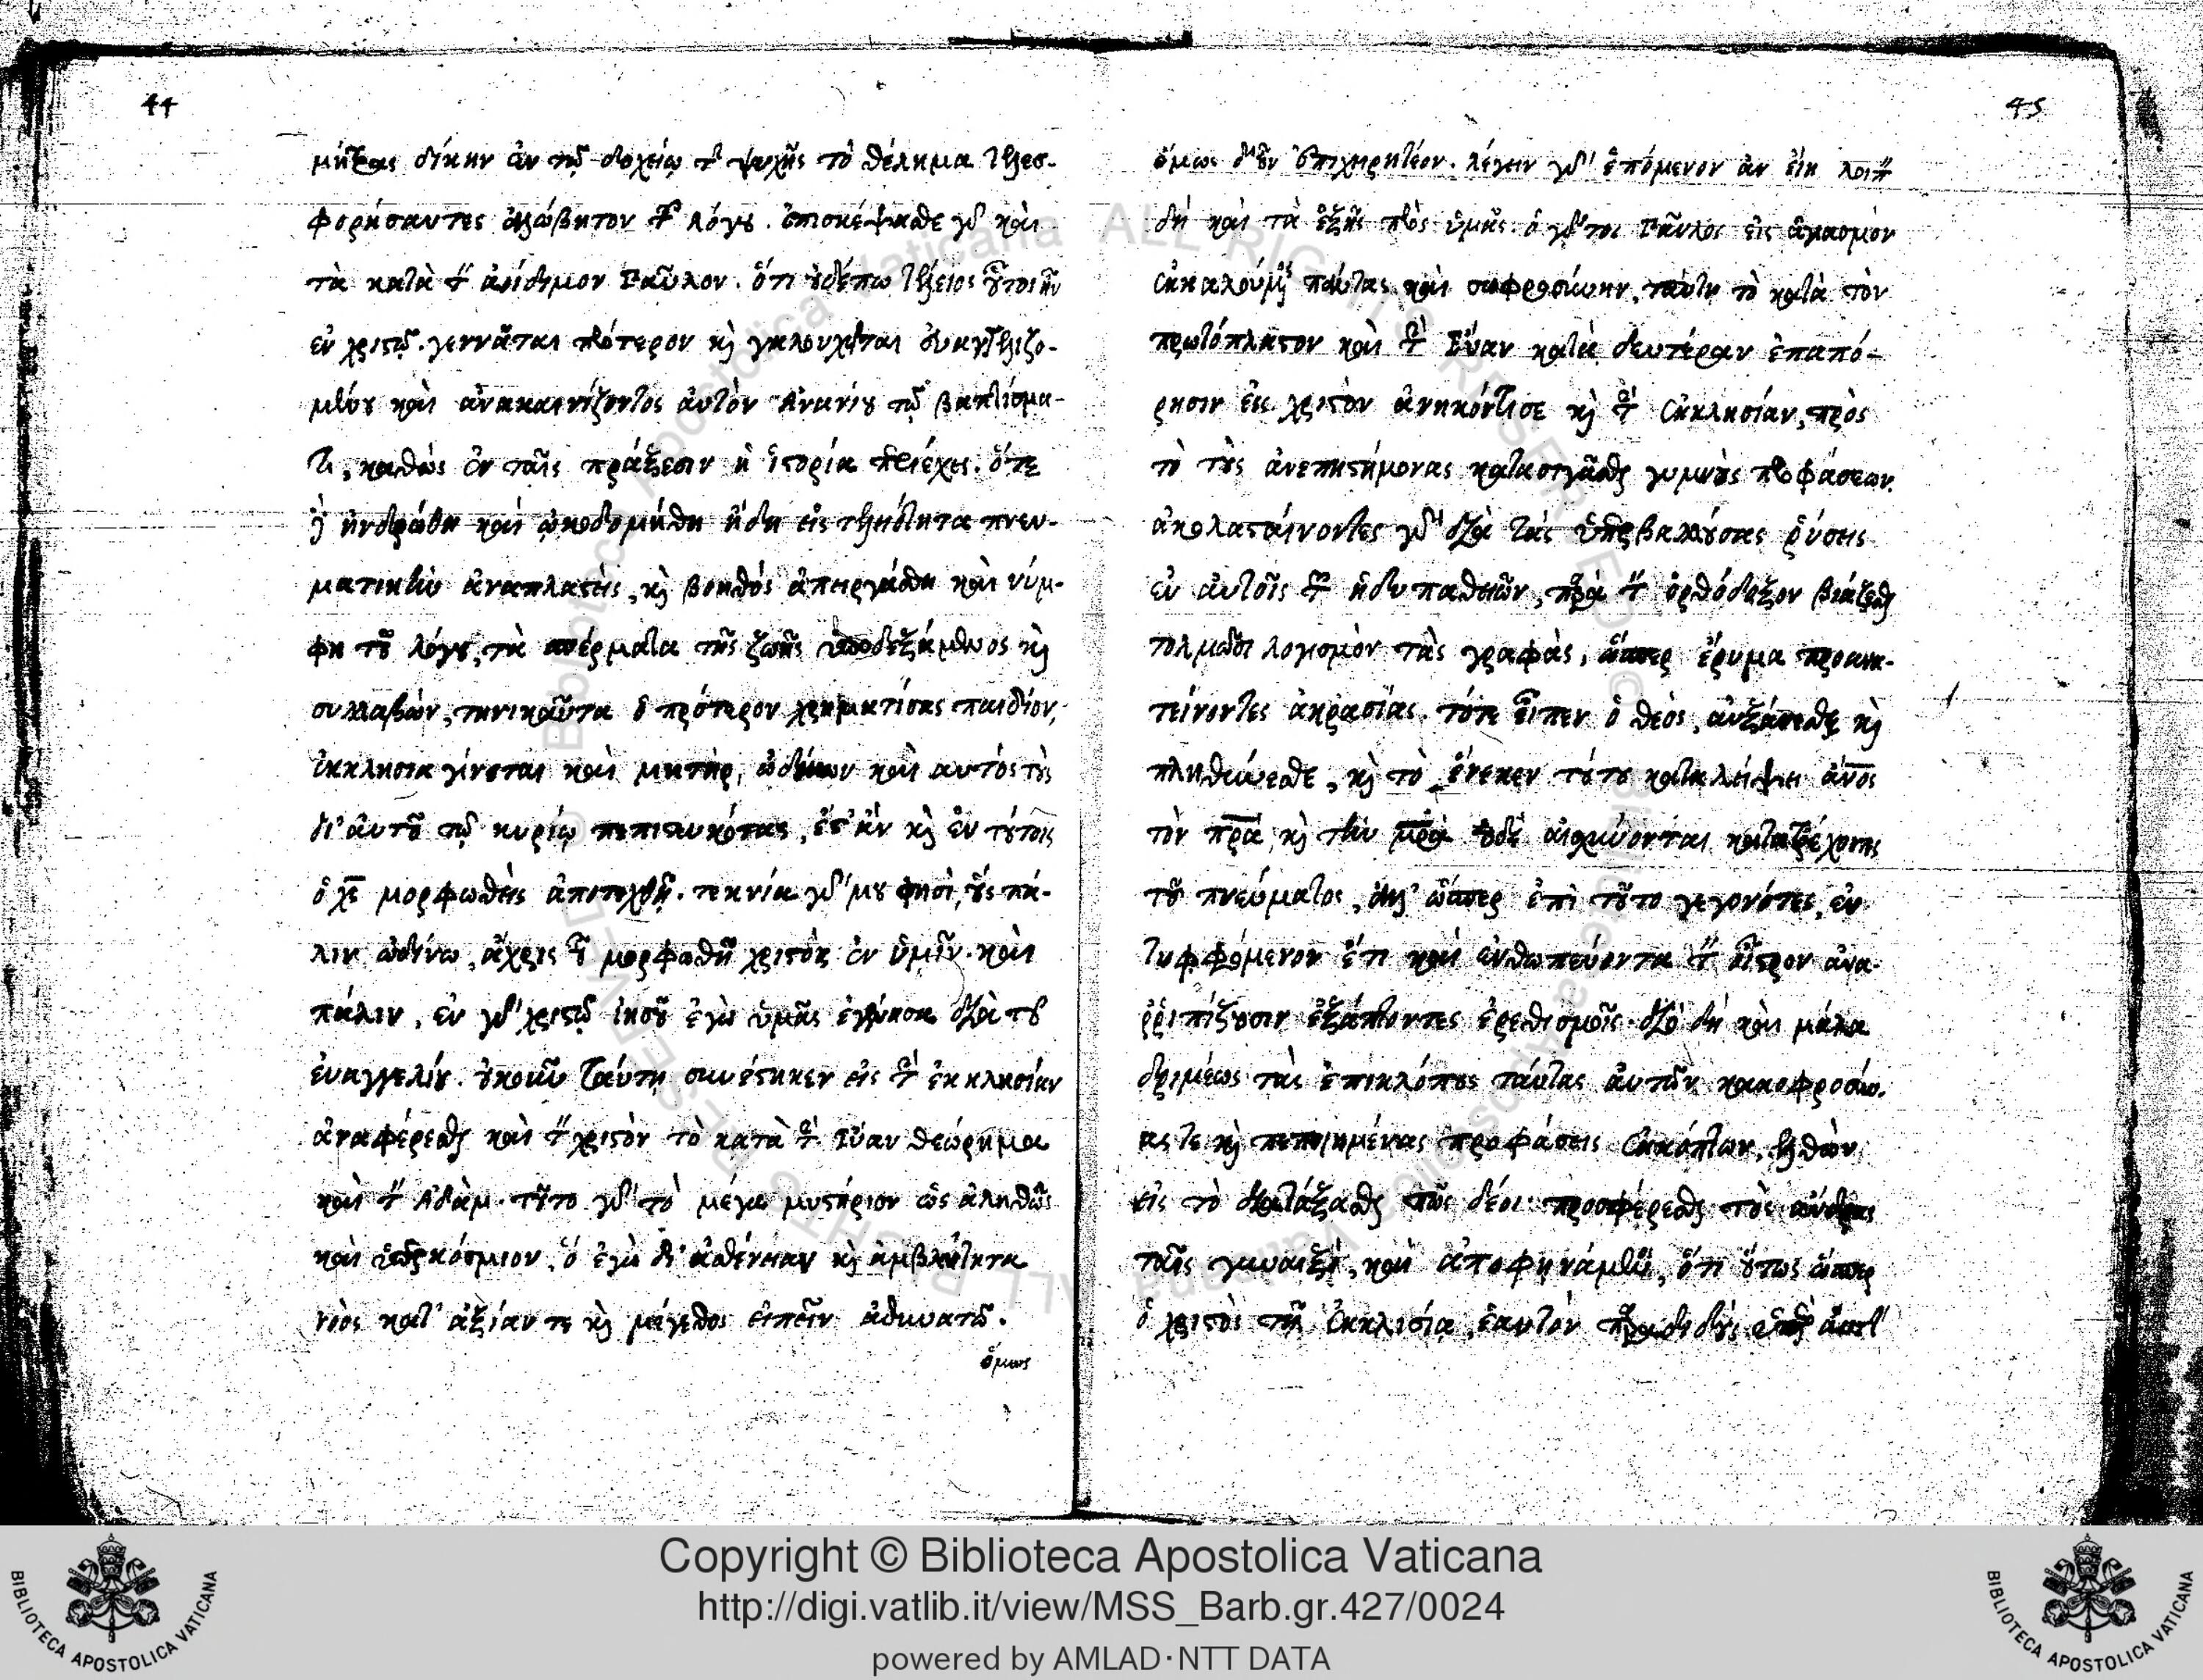 44
μήτρας δίκην ἐν τῷ δοχείῳ τῆς ψυχῆς τὸ θέλημα τελεσ-
φορήσαντες ἀλώβητον τοῦ λόγου. ἐπισκέψασθε γὰρ καὶ
τὰ κατὰ τὸν ἀοίδιμον Παῦλον. ὅτι οὐδέπω τέλειος οὗτος ὢν
ἐν χριστῷ. γεννᾶται πρότερον κỳ γαλουχεῖται εὐαγγελιζο-
μένου καὶ ἀνακαινίζοντος αὐτὸν Ἀνανίου τῷ βαπτίσμα-
τι, καθὼς ἐν ταῖς πράξεσιν ἡ ἱστορία περιέχει. ὅτε
δὲ ἠνδρώθη καὶ ᾠκοδομήθη ἤδη εἰς τελειότητα πνευ-
ματικὴν ἀναπλασθείς, καὶ βοηθός ἀπειργάσθη καὶ νύμ-
φη τοῦ λόγου, τὰ σπέρματα τῆς ζωῆς ὑποδεξάμενος καὶ
συλλαβών, τηνικαῦτα ὁ πρότερον χρηματίσας παιδίον,
ἐκκλησία γίνεται καὶ μητήρ, ὠδίνων καὶ αυτός τοὺς
δι' αὐτοῦ τῷ κυρίῳ πεπιστευκότας, ἔστ' ἂν καὶ ἐν τούτοις
ὁ χς μορφωθεὶς ἀποτεχθῇ. τεκνία γάρ μου φησὶ, οὓς πά-
λιν ὠδίνω, ἄχρις οὗ μορφωθῇ χριστὸς ἐν ὑμῖν. καὶ
πάλιν, ἐν γὰρ χριστῷ ἰησοῦ ἐγὼ ὑμᾶς ἐγέννησα διὰ τοῦ
ἐυαγγελίου. οὐκοῦν ταύτῃ συνέστηκεν εἰς τὴν ἐκκλησίαν
ἀναφέρεσθαι καὶ τὸν χριστὸν τὸ κατὰ τὴν Εὔαν θεώρημα
καὶ τὸν Ἀδάμ. τοῦτο γὰρ τὸ μέγα μυστήριον ὡς ἀληθῶς
καὶ ὑπερκόσμιον, ὃ ἐγὼ δι' ἀσθένειαν καὶ ἀμβλύτητα
νοὸς κατ' ἀξίαν τε καὶ μέγεθος εἰπεῖν ἀδυνατῶ.
ὅμως
45
ὅμως δ' οὖν ἐπιχειρητέον. λέγειν γὰρ ἑπόμενον ἂν εἴη λοιπὸν
δὴ καὶ τὰ ἑξῆς πρὸς ὑμᾶς. ὁ γάρ τοι Παῦλος εἰς ἁγιασμὸν
ἐκκαλούμενος πάντας καὶ σωφροσύνην, ταύτῃ τὸ κατὰ τὸν
πρωτόπλαστον καὶ τὴν Εὔαν κατὰ δευτέραν ἐπαπό-
ρησιν εἰς χριστὸν ἀνηκόντισε καὶ τὴν ἐκκλησίαν, πρὸς
τὸ τοὺς ἀνεπιστήμονας κατασιγᾶσθαι γυμνοὺς προφάσεων.
ἀκολασταίνοντες γὰρ διὰ τὰς ὑπερβαλλούσας ῥύσεις
ἐν αὐτοῖς τῶν ἡδυπαθειῶν, παρὰ τὸν ὀρθόδοξον βιάζεσθαι
τολμῶσι λογισμὸν τὰς γραφὰς, ὥσπερ ἔρυμα προανα-
τείνοντες ἀκρασίας. τότε εἶπεν ὁ θεὸς, αὐξάνεσθε καὶ
πληθύνεσθε, καὶ τὸ ἕνεκεν τούτου καταλείψει ἄνος
τὸν πρα, καὶ τὴν μρα οὐδὲ αἰσχύνονται κατατρέχοντες
τοῦ πνεύματος, ἀλλ' ὥσπερ ἐπὶ τοῦτο γεγονότες, ἐν
τυφφόμενον ἔτι καὶ ἐνθωπεύοντα τὸν οἶστρον ἀνα-
ῤῥιπίζουσιν ἐξάπτοντες ἐρεθισμοῖς. διὸ δὴ καὶ μάλα
δριμέως τὰς ἐπικλόπους ταύτας αὐτῶν κακοφροσύν-
ας τε καὶ πεποιημένας προφάσεις ἐκκόπτων, ἐλθὼν
εἰς τὸ διατάξασθαι πῶς δέοι προσφέρεσθαι τοὺς ἄνδρας
ταῖς γυναιξί, καὶ ἀποφηνάμενος, ὅτι οὕτως ὥσπερ
ὁ χριστὸς τῇ ἐκκλησίᾳ, ἑαυτὸν παραδιδοὺς ὑπὲρ αὐτῆς
Copyright © Biblioteca Apostolica Vaticana
http://digi.vatlib.it/view/MSS_Barb.gr.427/0024
powered by AMLAD·NTT DATA
BIBLIOTECA APOSTOLICA VATICANA
BIBLIOTECA APOSTOLICA VATICANA